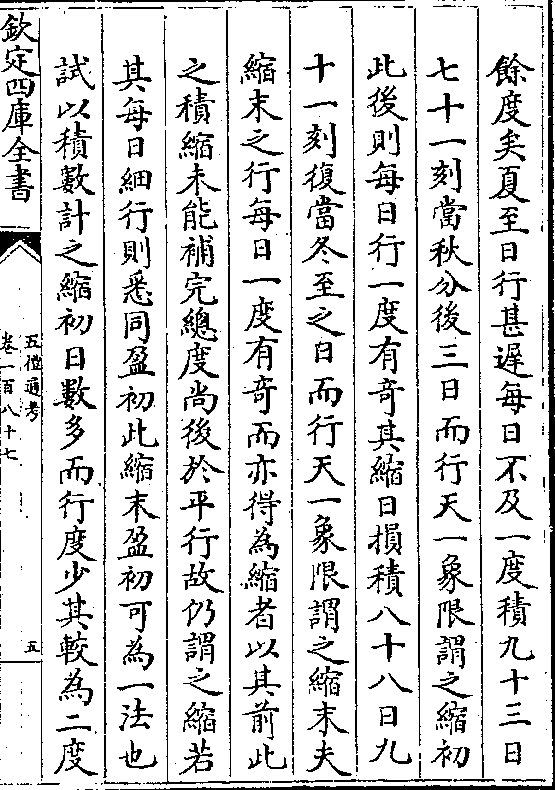 餘度矣夏至日行甚遲每日不及一度積九十三日
七十一刻當秋分後三日而行天一象限謂之縮初
此後則每日行一度有奇其縮日損積八十八日九
十一刻復當冬至之日而行天一象限謂之縮末夫
縮末之行每日一度有奇而亦得為縮者以其前此
之積縮未能補完總度尚後於平行故仍謂之縮若
其每日細行則悉同盈初此縮末盈初可為一法也
試以積數計之縮初日數多而行度少其較為二度
欽定四庫全書
五禮通考
卷一百八十七
五